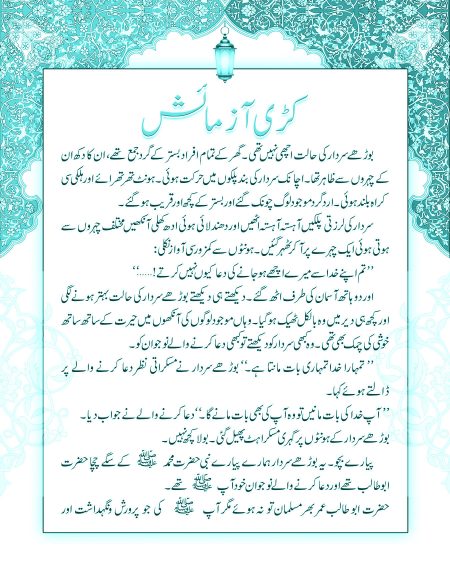 کڑی آزمائش
بوڑھے سردار کی حالت اچھی نہیں تھی۔ گھر کے تمام افراد بستر کے گرد جمع تھے، ان کا دکھ ان
کے چہروں سے ظاہر تھا۔ اچانک سردار کی بند پلکوں میں حرکت ہوئی۔ ہونٹ تھر تھرائے اور ہلکی سی
کراہ بلند ہوئی۔ اردگرد موجود لوگ چونک گئے اور بستر کے کچھ اور قریب ہو گئے۔
سردار کی لرزتی پلکیں آہستہ آہستہ اٹھیں اور دھندلائی ہوئی ادھ کھلی آنکھیں مختلف چہروں سے
ہوتی ہوئی ایک چہرے پر آ کر ٹھہر گئیں۔ ہونٹوں سے کمزور سی آواز نکلی:
”تم اپنے خدا سے میرے اچھے ہو جانے کی دعا کیوں نہیں کرتے!.....“
اور دو ہاتھ آسمان کی طرف اٹھ گئے۔ دیکھتے ہی دیکھتے بوڑھے سردار کی حالت بہتر ہونے لگی
اور کچھ ہی دیر میں وہ بالکل ٹھیک ہو گیا۔ وہاں موجود لوگوں کی آنکھوں میں حیرت کے ساتھ ساتھ
خوشی کی چمک بھی تھی۔ وہ بھی سردار کو دیکھتے تو بھی دعا کرنے والے نوجوان کو۔
”تمہارا خدا تمہاری بات مانتا ہے۔“ بوڑھے سردار نے مسکراتی نظر دعا کرنے والے پر
ڈالتے ہوئے کہا۔
”آپ خدا کی بات مانیں تو وہ آپ کی بھی بات مانے گا۔“ دعا کرنے والے نے جواب دیا۔
بوڑھے سردار کے ہونٹوں پر گہری مسکراہٹ پھیل گئی۔ بولا کچھ نہیں۔
پیارے بچو۔ یہ بوڑھے سردار ہمارے پیارے نبی حضرت محمد ﷺ کے سگے چچا حضرت
ابو طالب تھے اور دعا کرنے والے نوجوان خود آپ ﷺ تھے۔
حضرت ابو طالب عمر بھر مسلمان تو نہ ہوئے مگر آپ ﷺ کی جو پرورش و نگہداشت اور